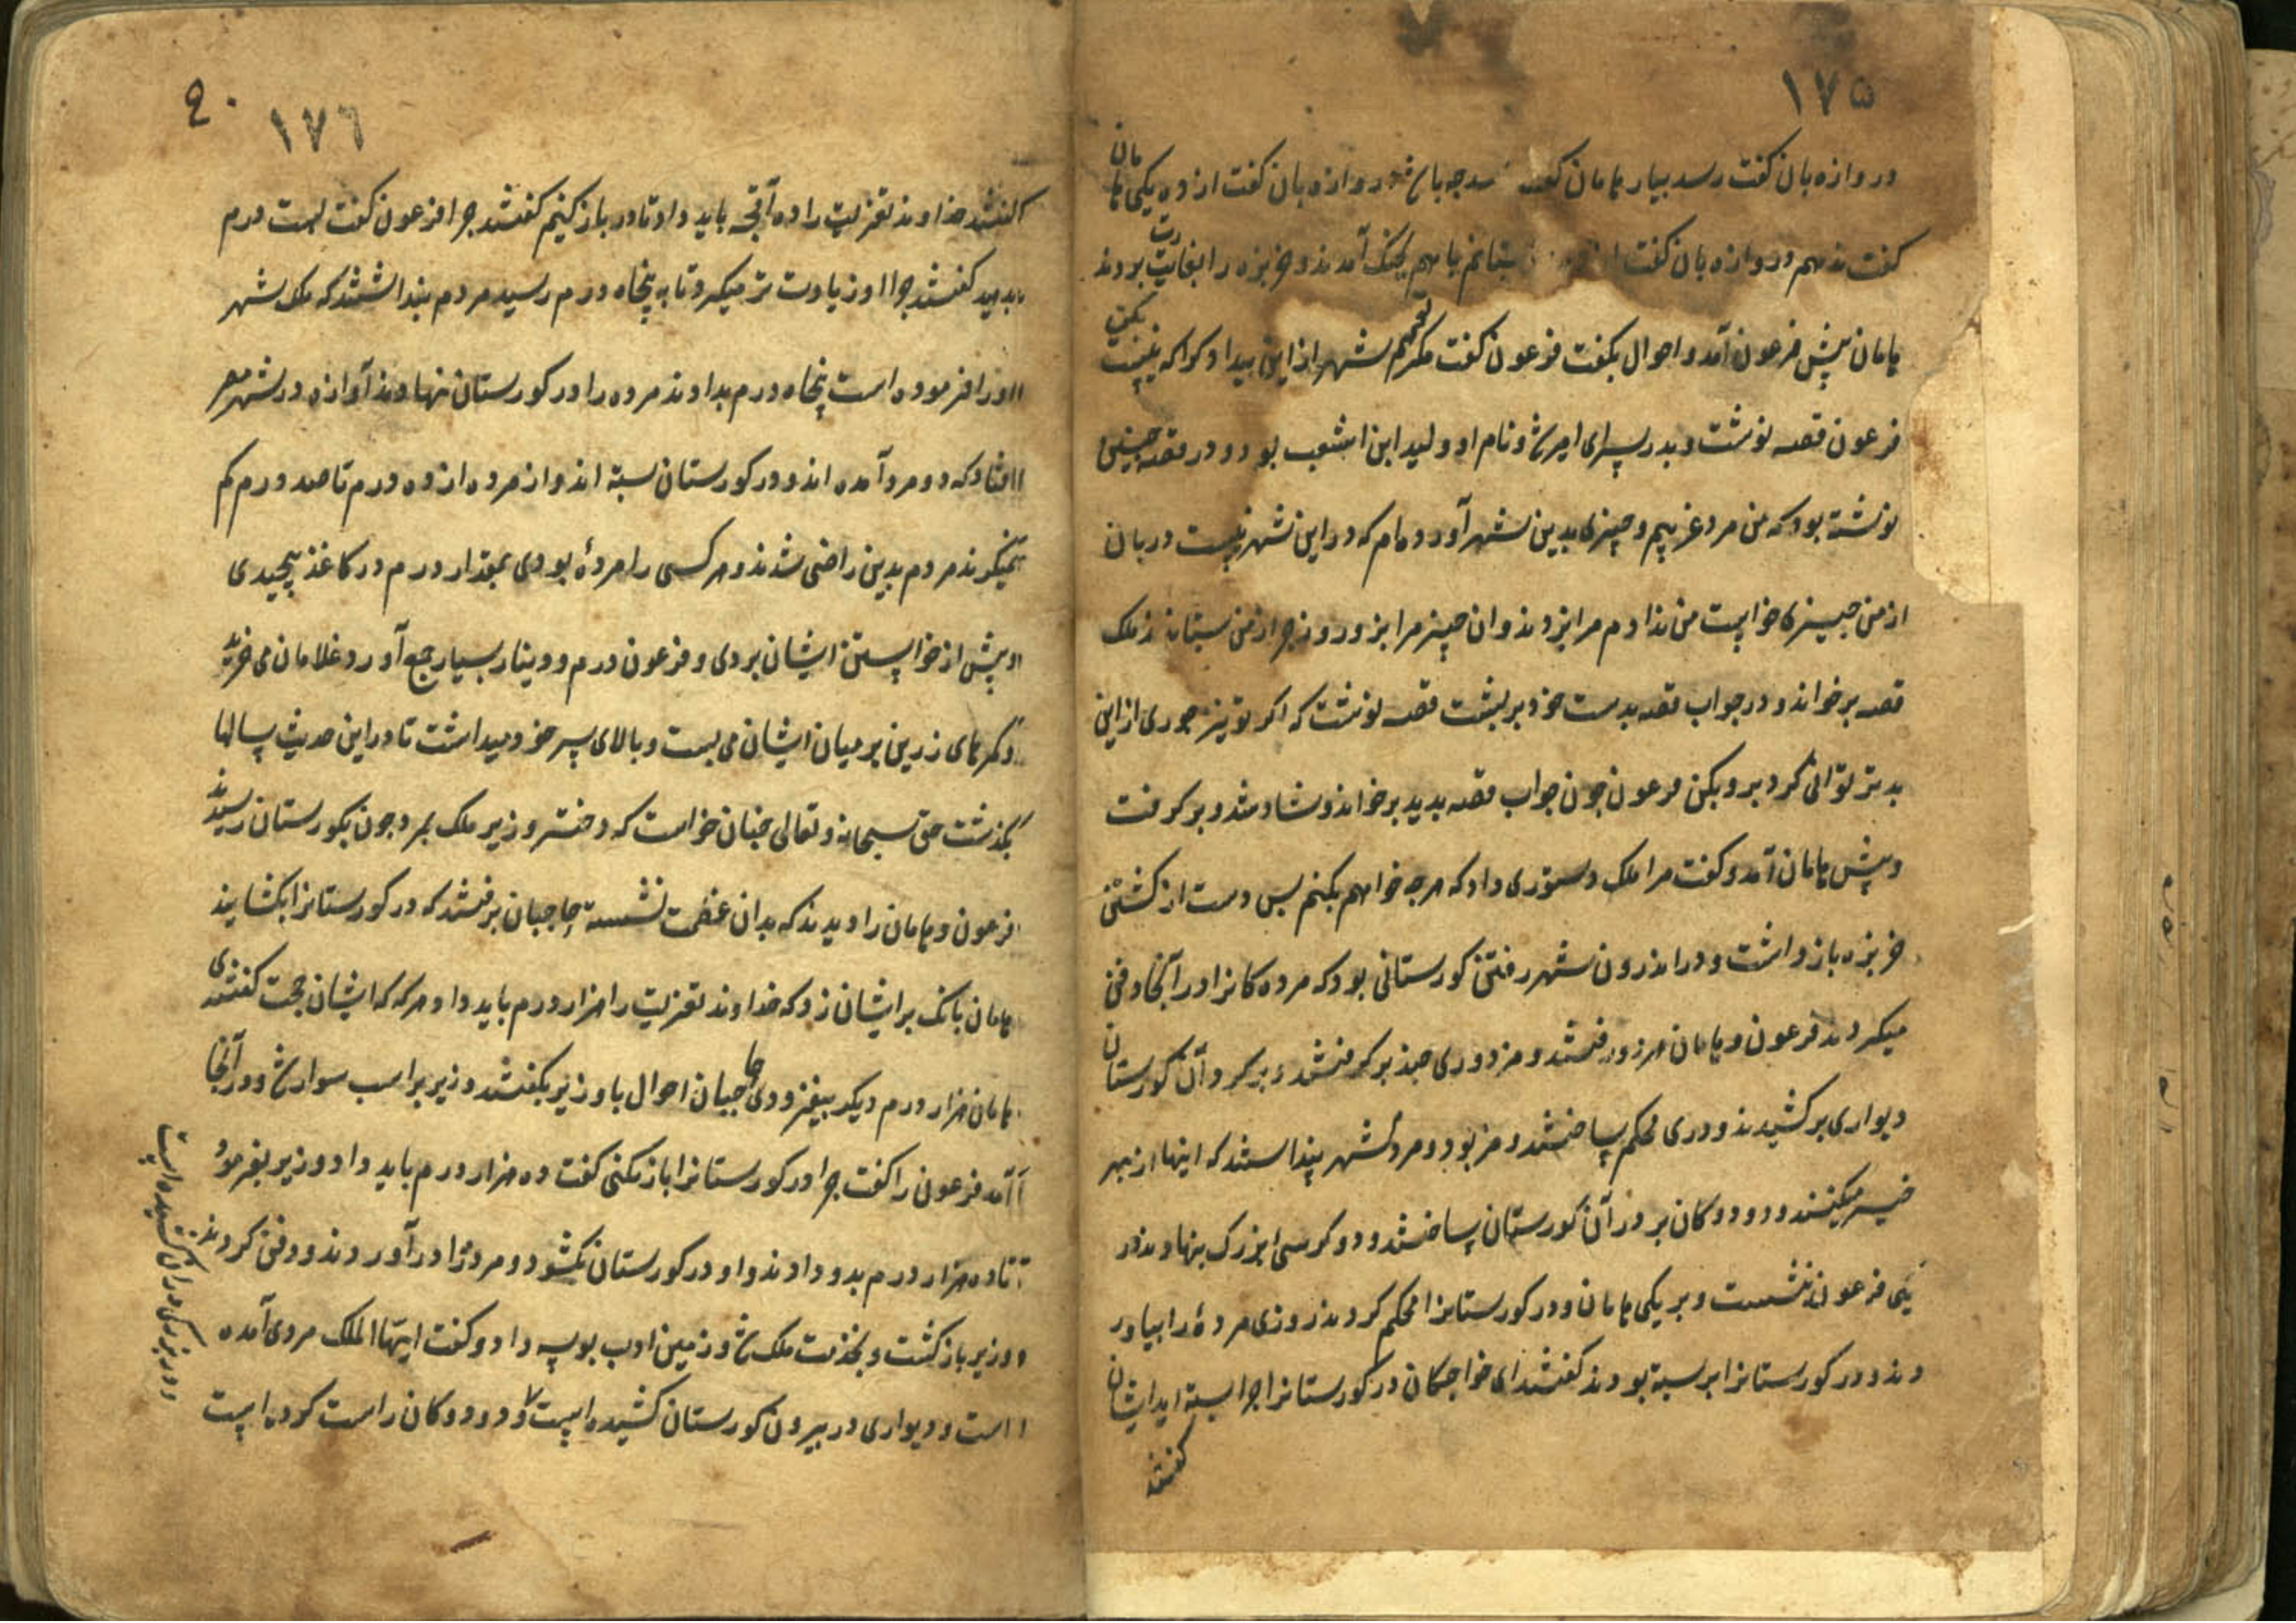 ۱۷۵
دروازه بان گفت رسد بیار هامان گفت رسد چه باشد دروازه بان گفت از ده یکی هامان
گفت ندهم دروازه بان گفت بستانم باهم بجنگ آمدند و خربزه را بغارت بردند
هامان پیش فرعون آمد و احوال بگفت فرعون گفت مگر شهر از این بیداد کو که نیست
فرعون قصه نوشت و بدر سرای امیر شد و نام او ولید ابن اشعب بود و در قصه چنین
نوشته بود که من مرد غریبم و چیزی بدین شهر آورده‌ام که در این شهر نیست دربان
از من چیزی خواست من ندادم مرا بزدند و آن چیز مرا بزور و زجر از من ستانند ملک
قصه بر خواند و در جواب قصه بدست خود بر پشت قصه نوشت که اگر تو نیز جوری از این
بدتر توانی کرد برو بکن فرعون چون جواب قصه بدید بر خواند و شاد شد و بر گرفت
و پیش هامان آمد و گفت مرا ملک دستوری داد که هر چه خواهم بکنم پس دست از کشتن
خربزه باز داشت و در اندرون شهر رفتن گورستانی بود که مرده کانرا در آنجا دفن
میکردند فرعون و هامان هر روز رفتند و مزدوری چند بر گرفتند و بر گرد آن گورستان
دیواری بر کشیدند و دری محکم بساختند و مردم شهر پنداشتند که اینها از بهر
خیر میکنند و دو دوکان بر در آن گورستان بساختند و دو کرسی بزرگ بنهادند بر
یکی فرعون نشست و بر یکی هامان و در گورستانرا محکم کردند روزی مردهٔ را بیاور
دند و در گورستانرا بر بسته بودند گفتند ای خواجگان در گورستانرا چرا بسته اید ایشان
گفتند
۱۷٦
گفتند خداوند تعزیت را ده آقچه باید داد تا در باز کنیم گفتند چرا فرعون گفت بیست درم
بدهید گفتند چرا او زیادت تر میکرد تا به پنجاه درم رسید مردم پنداشتند که ملک شهر
او را فرموده است پنجاه درم بدادند مرده را در گورستان نهادند آوازه در شهر مصر
افتاد که دو مرد آمده اند و در گورستان بسته اند و از مرده از ده درم تا صد درم کم
نمیگیرند مردم بدین راضی شدند و هر کسی را مردهٔ بودی بمقدار درم در کاغذ پیچیدی
و پیش از خواستن ایشان بردی و فرعون درم و دینار بسیار جمع آورد و غلامان می خرید
و کمرهای زرین بر میان ایشان می بست و بالای سر خود میداشت تا در این حدیث سالها
بگذشت حق سبحانه و تعالی چنان خواست که دختر وزیر ملک بمرد چون بگورستان رسیدند
فرعون و هامان را دیدند که بدان عظمت نشسته حاجبان برفتند که در گورستانرا بکشایند
هامان بانک بر ایشان زد که خداوند تعزیت را هزار درم باید داد هر که که ایشان حجت گفتندی
هامان هزار درم دیگر بیفزودی حاجبان احوال با وزیر بگفتند وزیر بر اسب سوار شد و در آنجا
آمد فرعون را گفت چرا در گورستانرا باز نکنی گفت ده هزار درم باید داد وزیر بفرمود
تا ده هزار درم بدو دادند و او در گورستان بگشود و مرده را در آوردند و دفن کردند
وزیر باز گشت و بخدمت ملک شد و زمین ادب بوسه داد و گفت ایها الملک مردی آمده
است و دیواری در بیرون گورستان کشیده است و دو دوکان راست کرده است